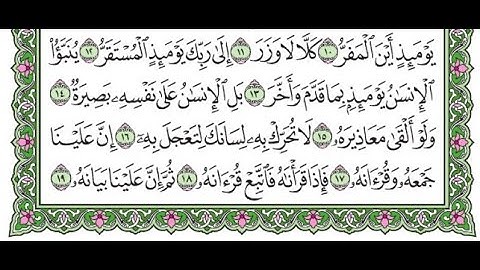 يَوۡمَئِذٍ أَيۡنَ ٱلۡمَفَرُّ ١٠ كَلَّا لَا وَزَرَ ١١ إِلَىٰ رَبِّكَ يَوۡمَئِذٍ ٱلۡمُسۡتَقَرُّ ١٢ يُنَبَّؤُاْ
ٱلۡإِنسَٰنُ يَوۡمَئِذِۭ بِمَا قَدَّمَ وَأَخَّرَ ١٣ بَلِ ٱلۡإِنسَٰنُ عَلَىٰ نَفۡسِهِۦ بَصِيرَةٞ ١٤
وَلَوۡ أَلۡقَىٰ مَعَاذِيرَهُۥ ١٥ لَا تُحَرِّكۡ بِهِۦ لِسَانَكَ لِتَعۡجَلَ بِهِۦٓ ١٦ إِنَّ عَلَيۡنَا
جَمۡعَهُۥ وَقُرۡءَانَهُۥ ١٧ فَإِذَا قَرَأۡنَٰهُ فَٱتَّبِعۡ قُرۡءَانَهُۥ ١٨ ثُمَّ إِنَّ عَلَيۡنَا بَيَانَهُۥ ١٩